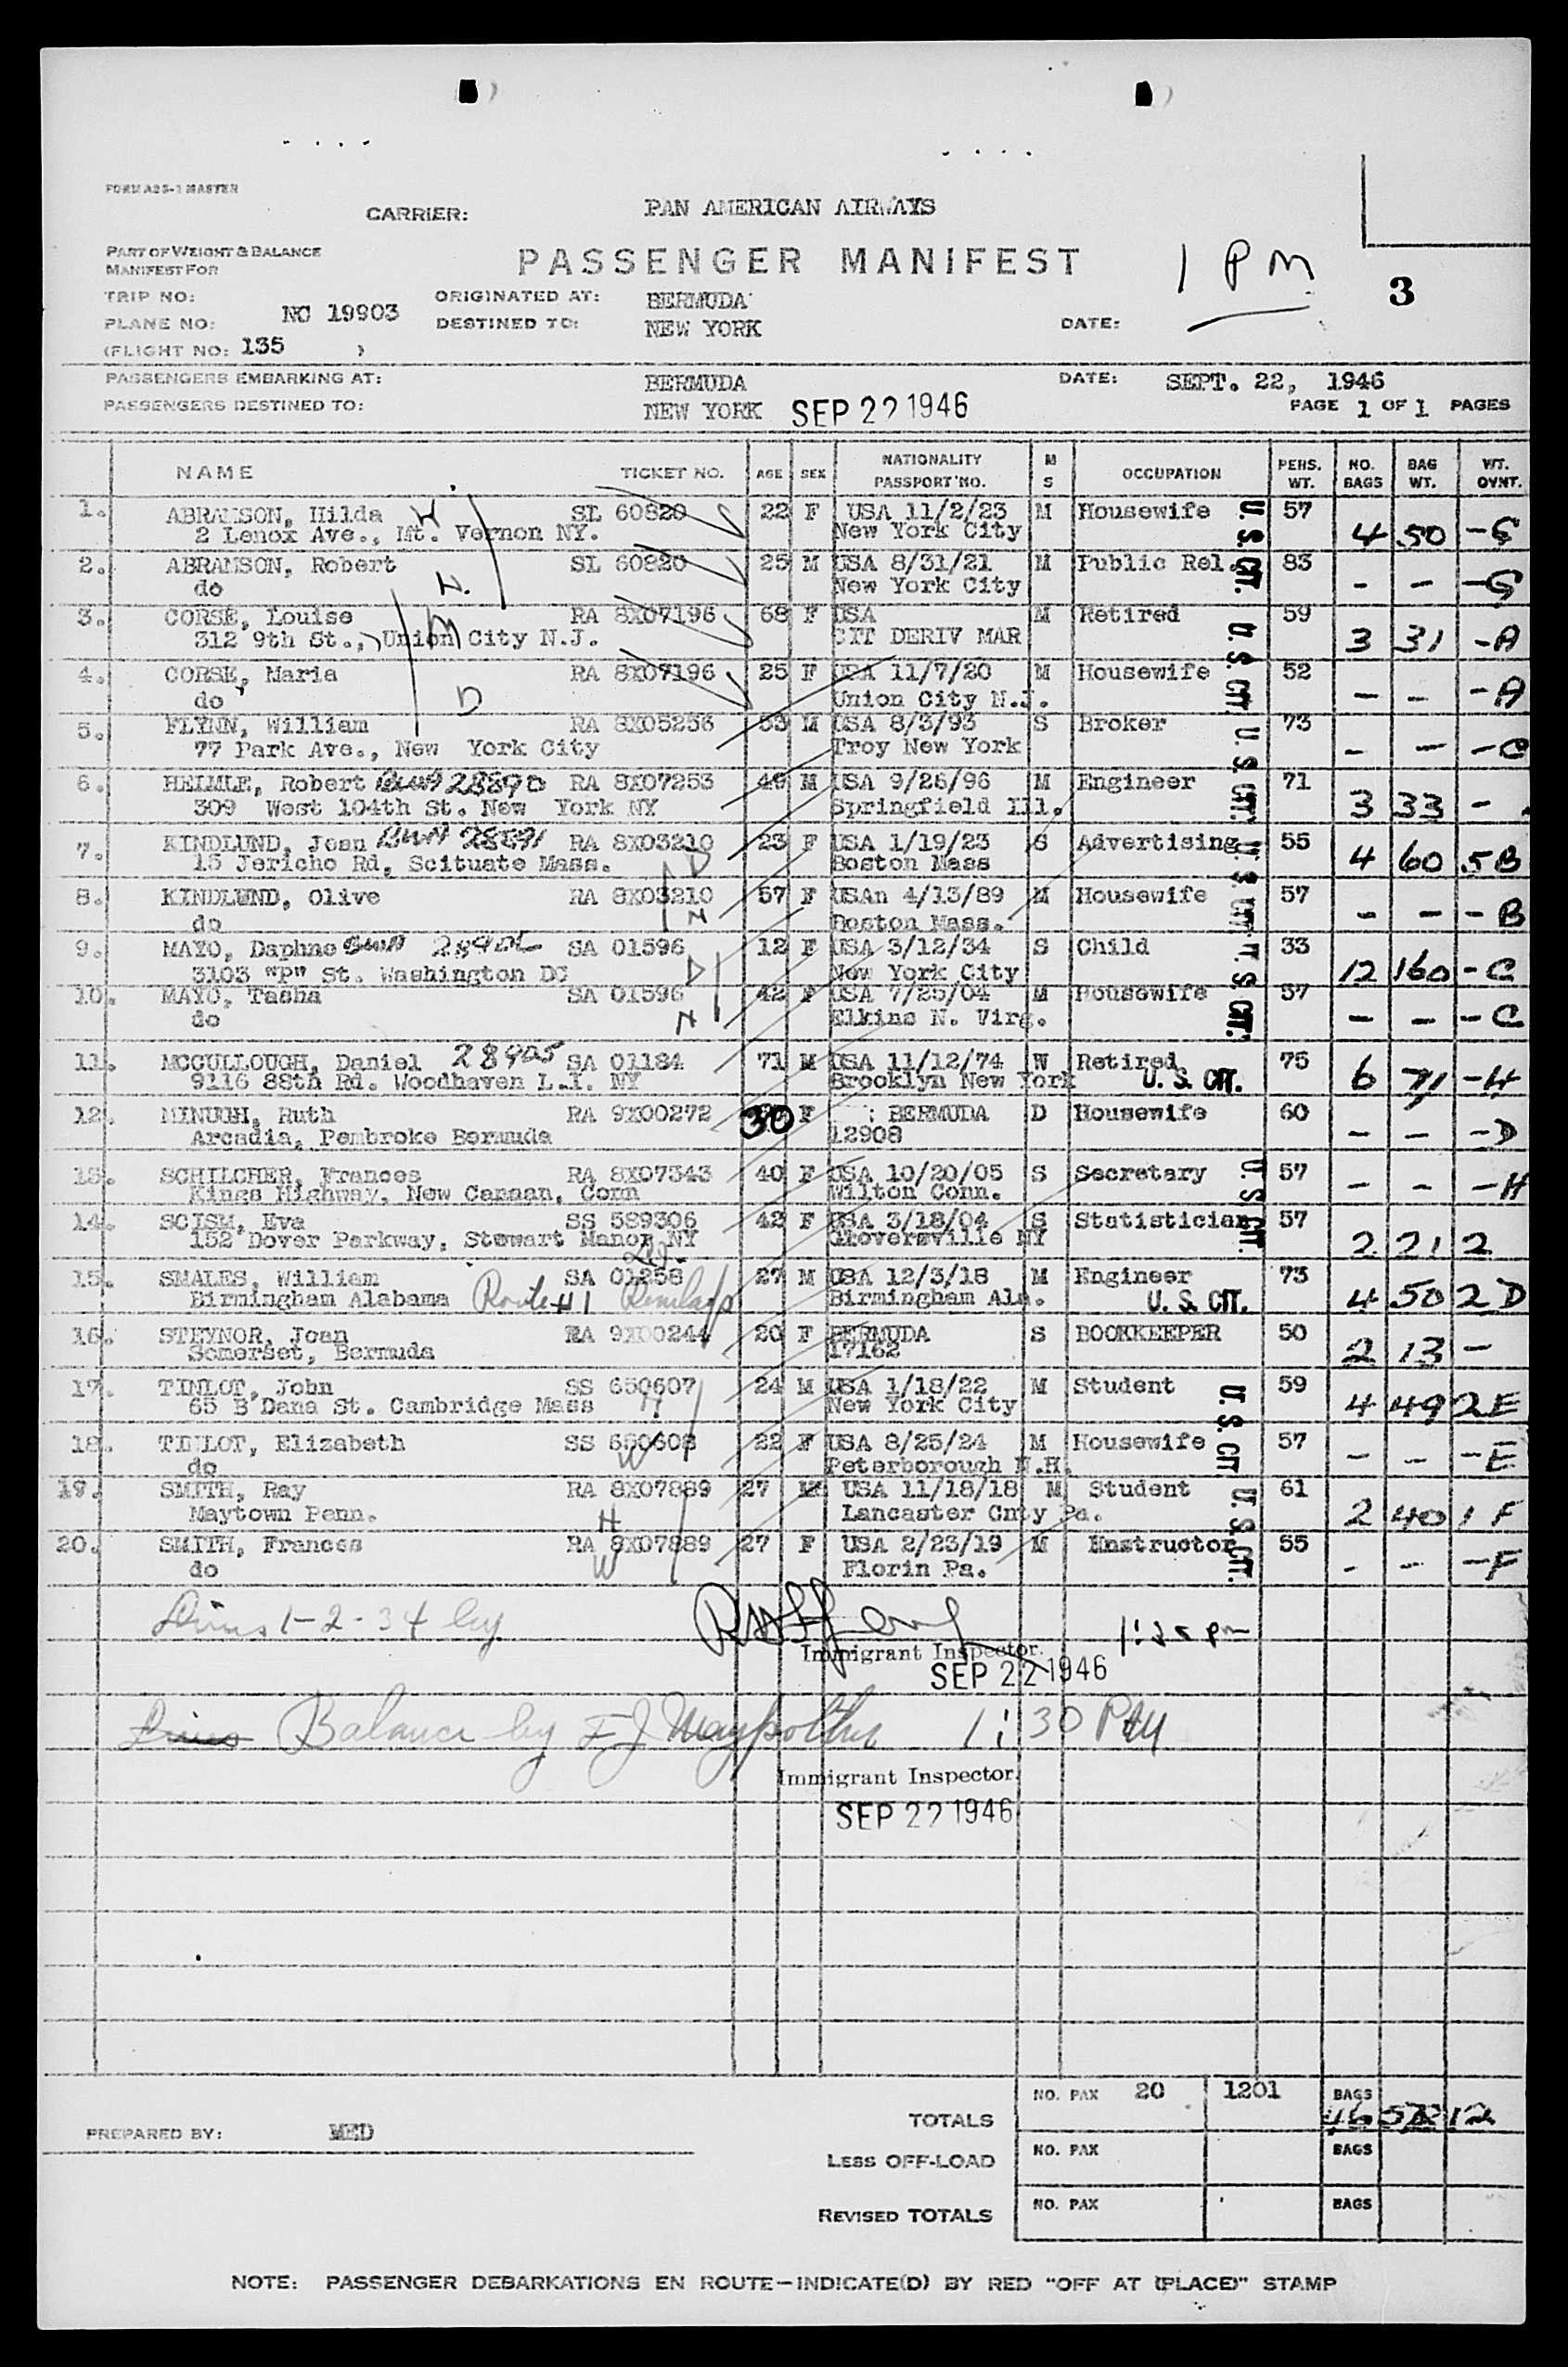 FORM ABS-1 MASTER
CARRIER: PAN AMERICAN AIRWAYS
PART OF WEIGHT & BALANCE
MANIFEST FOR
PASSENGER MANIFEST
1 PM
3
TRIP NO: ORIGINATED AT: BERMUDA
PLANE NO: NC 19903 DESTINED TO: NEW YORK DATE:
(FLIGHT NO: 135 )
PASSENGERS EMBARKING AT: BERMUDA DATE: SEPT. 22, 1946
PASSENGERS DESTINED TO: NEW YORK SEP 22 1946 PAGE 1 OF 1 PAGES
NAME TICKET NO. AGE SEX NATIONALITY PASSPORT NO. M S OCCUPATION PERS. WT. NO. BAGS BAG WT. WT. OVNT.
1. ABRAMSON, Hilda H SL 60820 22 F USA 11/2/23 M Housewife U.S. CIT. 57
2 Lenox Ave., Mt. Vernon NY. New York City 4 50 - G
2. ABRAMSON, Robert SL 60820 25 M USA 8/31/21 M Public Rel. 83
do H. New York City - - - G
3. CORSE, Louise RA 8X07196 68 F USA M Retired U.S. CIT. 59
312 9th St., Union City N.J. M CIT DERIV MAR 3 31 - A
4. CORSE, Maria RA 8X07196 25 F USA 11/7/20 M Housewife 52
do D Union City N.J. - - - A
5. FLYNN, William RA 8X05236 53 M USA 8/3/93 S Broker U.S. CIT. 73
77 Park Ave., New York City Troy New York - - - C
6. HEIMLE, Robert BWA 28890 RA 8X07253 49 M USA 9/26/96 M Engineer 71
309 West 104th St. New York NY Springfield Ill. 3 33 -
7. KINDLUND, Jean BWA 28891 RA 8X03210 23 F USA 1/19/23 S Advertising U.S. CIT. 55
15 Jericho Rd, Scituate Mass. D Boston Mass 4 60 5 B
8. KINDLUND, Olive RA 8X03210 57 F USAn 4/13/89 M Housewife 57
do Boston Mass. - - - B
9. MAYO, Daphne BWA SA 01596 12 F USA 3/12/34 S Child U.S. CIT. 33
3103 "P" St. Washington DC D New York City 12 160 - C
10. MAYO, Tasha SA 01596 42 F USA 7/25/04 M Housewife 57
do Elkins N. Virg. - - - C
11. MCCULLOUGH, Daniel 28905 SA 01184 71 M USA 11/12/74 W Retired 75
9116 88th Rd. Woodhaven L.I. NY Brooklyn New York U.S. CIT. 6 71 - H
12. MINUGH, Ruth RA 9X00272 30 F : BERMUDA D Housewife 60
Arcadia, Pembroke Bermuda 12908 - - - D
13. SCHILCHER, Frances RA 8X07343 40 F USA 10/20/05 S Secretary U.S. CIT. 57
Kings Highway, New Canaan, Conn Wilton Conn. - - - H
14. SCISM, Eva SS 589306 42 F USA 3/18/04 S Statistician 57
152 Dover Parkway, Stewart Manor NY Gloversville NY 2 21 2
15. SMALES, William SA 01258 27 M USA 12/3/18 M Engineer 73
Birmingham Alabama Route #1 Birmingham Ala. U.S. CIT. 4 50 2 D
16. STEYNOR, Joan RA 9X00244 20 F BERMUDA S BOOKKEEPER 50
Somerset, Bermuda 17162 2 13 -
17. TINLOT, John SS 650607 24 M USA 1/18/22 M Student U.S. CIT 59
65 B Dana St. Cambridge Mass H New York City 4 49 2 E
18. TINLOT, Elizabeth SS 650608 22 F USA 8/25/24 M Housewife 57
do W Peterborough N.H. - - - E
19. SMITH, Ray RA 8X07889 27 M USA 11/18/18 M Student U.S. CIT. 61
Maytown Penn. H Lancaster Cnty Pa. 2 40 1 F
20. SMITH, Frances RA 8X07889 27 F USA 2/23/19 M Instructor 55
do W Florin Pa. - - - F
1-2-34 by
1:25 pm
Immigrant Inspector.
SEP 22 1946
Balance by F J 1:30 PM
Immigrant Inspector.
SEP 22 1946
TOTALS NO. PAX 20 1201 BAGS 46 12
PREPARED BY: MED
LESS OFF-LOAD NO. PAX BAGS
REVISED TOTALS NO. PAX BAGS
NOTE: PASSENGER DEBARKATIONS EN ROUTE—INDICATE(D) BY RED "OFF AT (PLACE)" STAMP